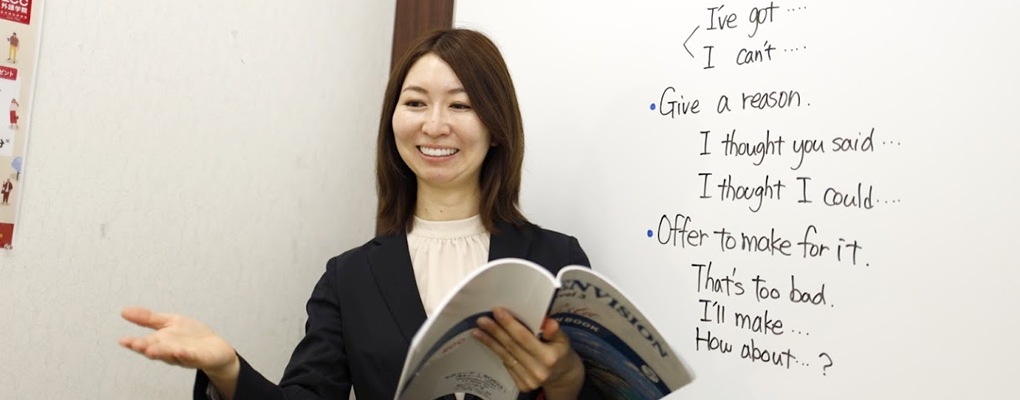 外語学院
I've got ....
I can't ....
• Give a reason.
I thought you said ...
I thought I could....
• Offer to make for it.
That's too bad.
I'll make ...
How about... ?
ENVISION
BOOK